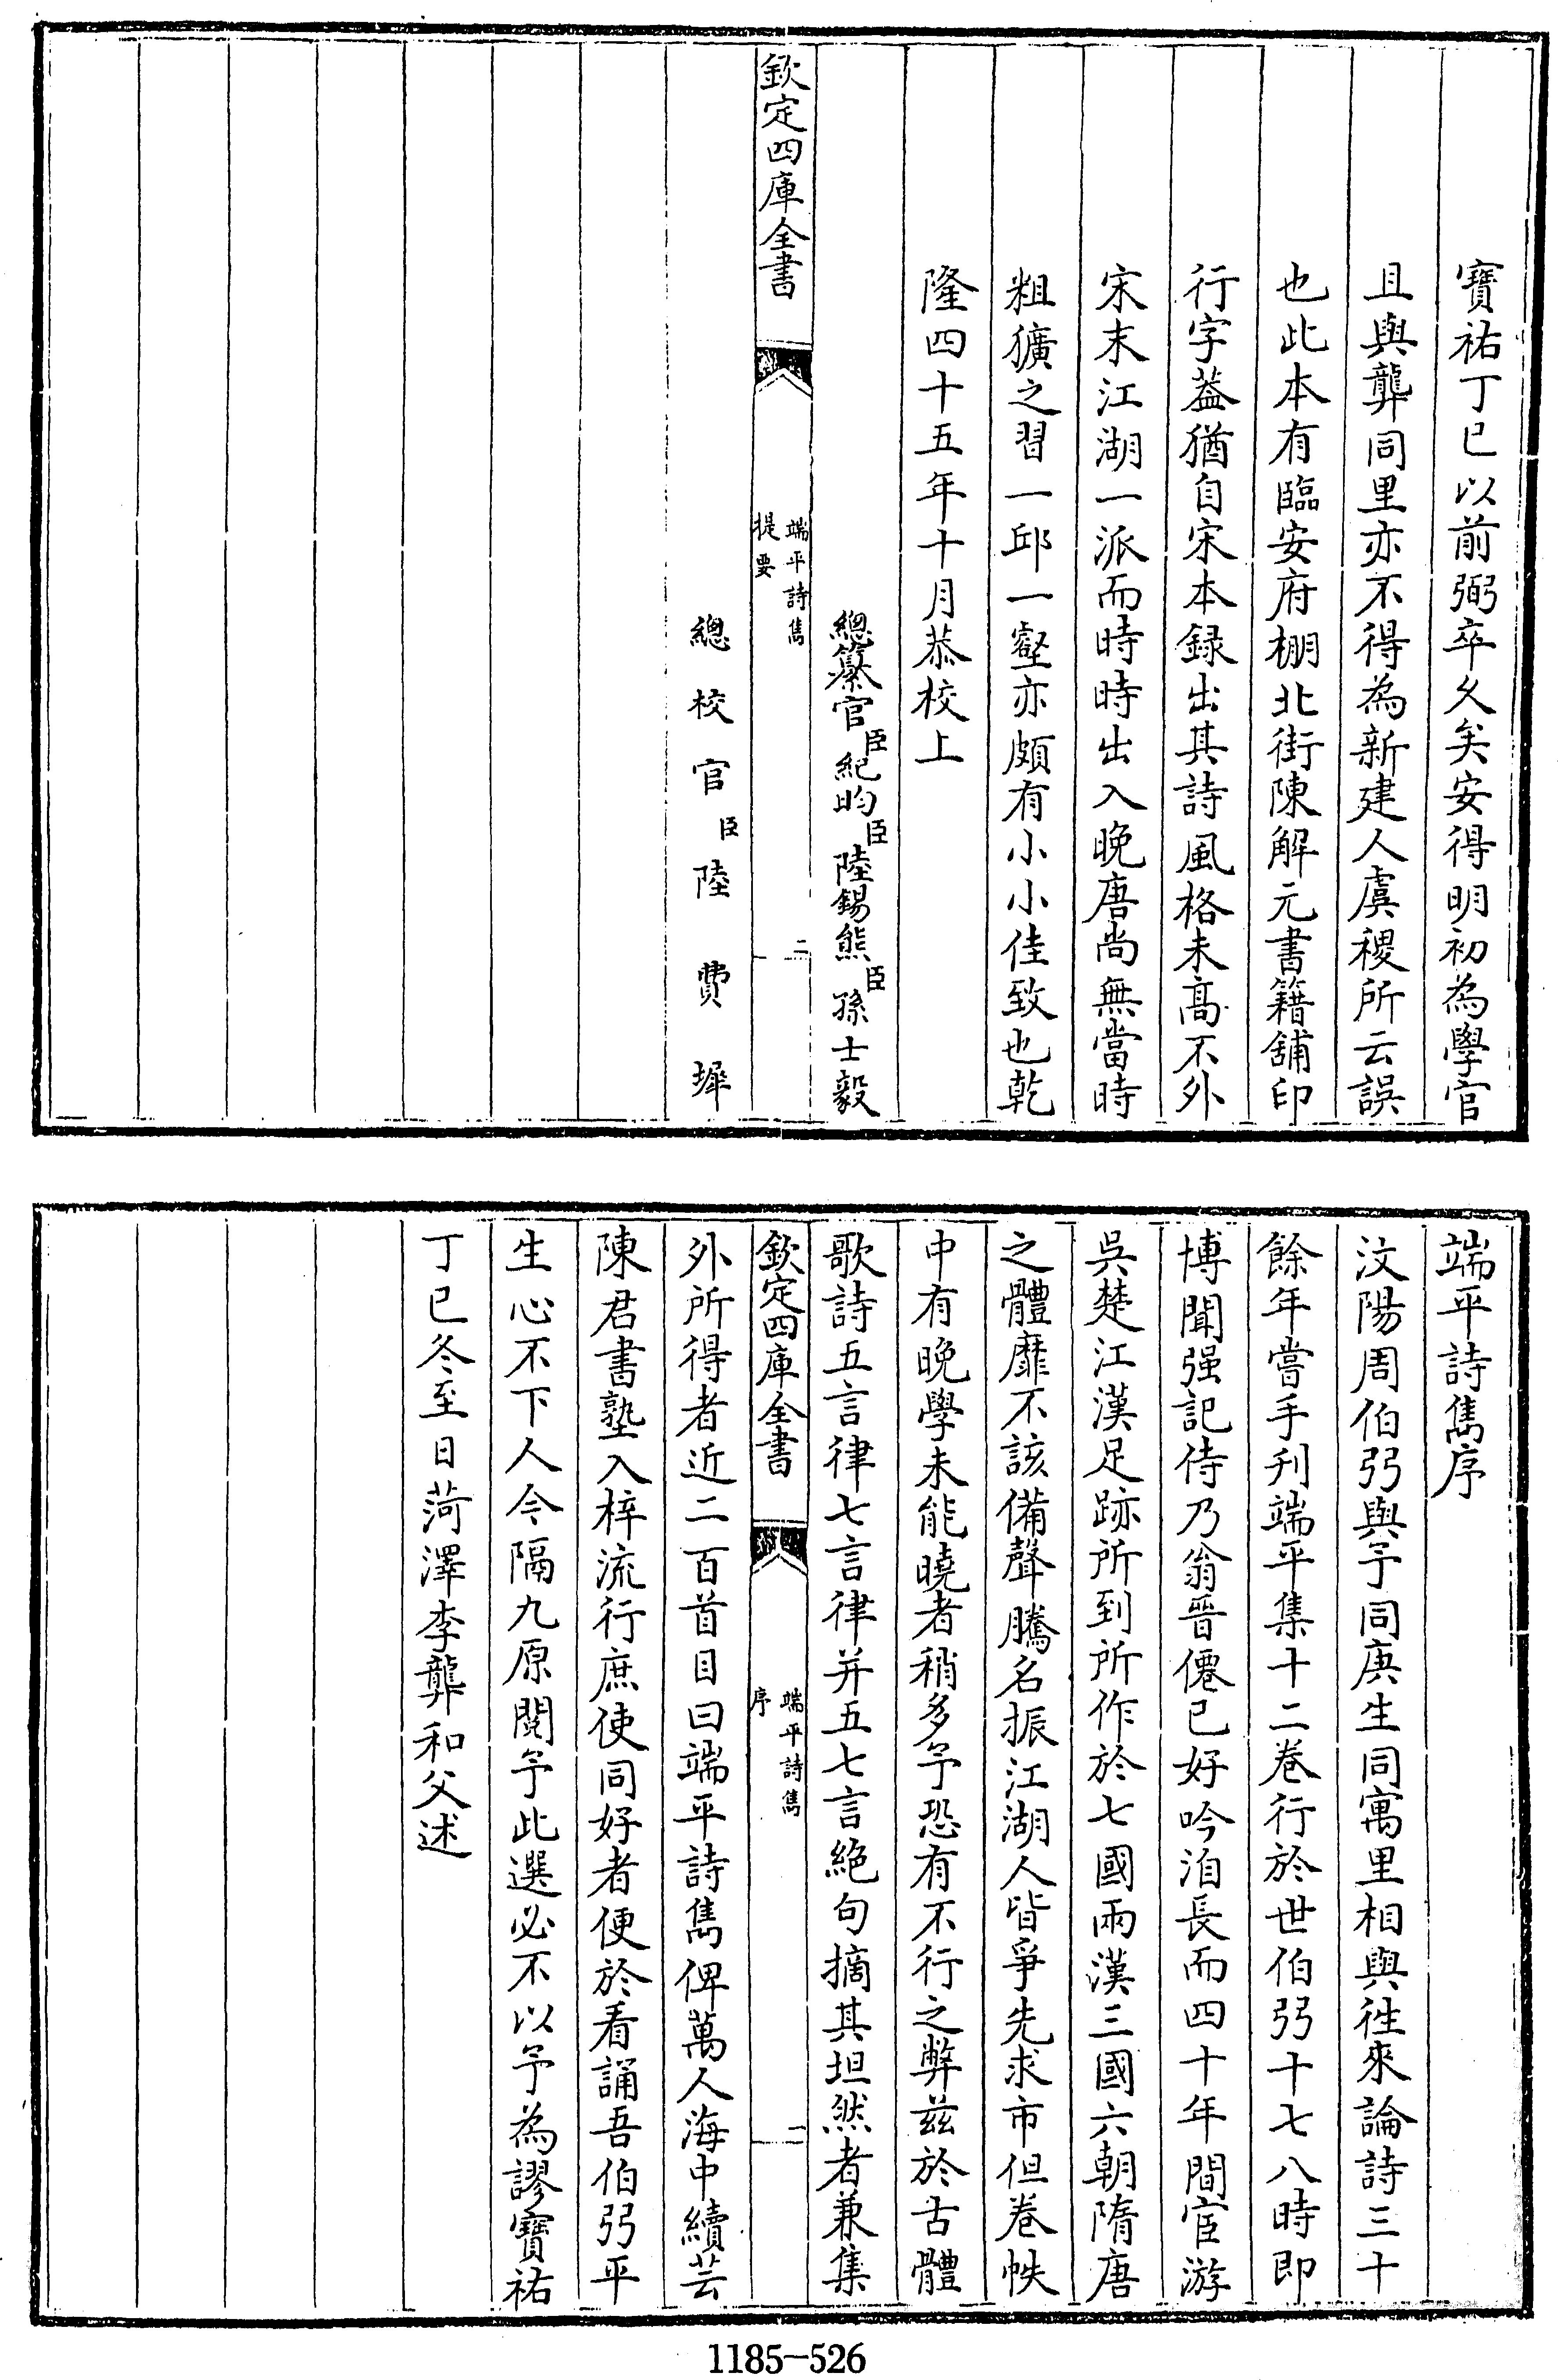 寶祐丁巳以前弼卒久矣安得明初為學官
且與龏同里亦不得為新建人虞稷所云誤
也此本有臨安府棚北街陳解元書籍舖印
行字葢猶自宋本録出其詩風格未髙不外
宋末江湖一派而時時出入晚唐尚無當時
粗獷之習一邱一壑亦頗有小小佳致也乾
隆四十五年十月恭校上
總纂官臣紀昀臣陸錫熊臣孫士毅
欽定四庫全書
端平詩雋
提要
二
總校官臣陸費墀
端平詩雋序
汶陽周伯弜與予同庚生同寓里相與往來論詩三十
餘年嘗手刋端平集十二巻行於世伯弜十七八時即
博聞强記侍乃翁晉僊已好吟洎長而四十年間宦游
吳楚江漢足跡所到所作於七國兩漢三國六朝隋唐
之體靡不該備聲騰名振江湖人皆爭先求市但巻帙
中有晚學未能曉者稍多予恐有不行之弊兹於古體
歌詩五言律七言律并五七言絶句摘其坦然者兼集
欽定四庫全書
端平詩雋
序
一
外所得者近二百首目曰端平詩雋俾萬人海中續芸
陳君書塾入梓流行庶使同好者便於看誦吾伯弜平
生心不下人今隔九原閱予此選必不以予為謬寶祐
丁巳冬至日菏澤李龏和父述
1185-526